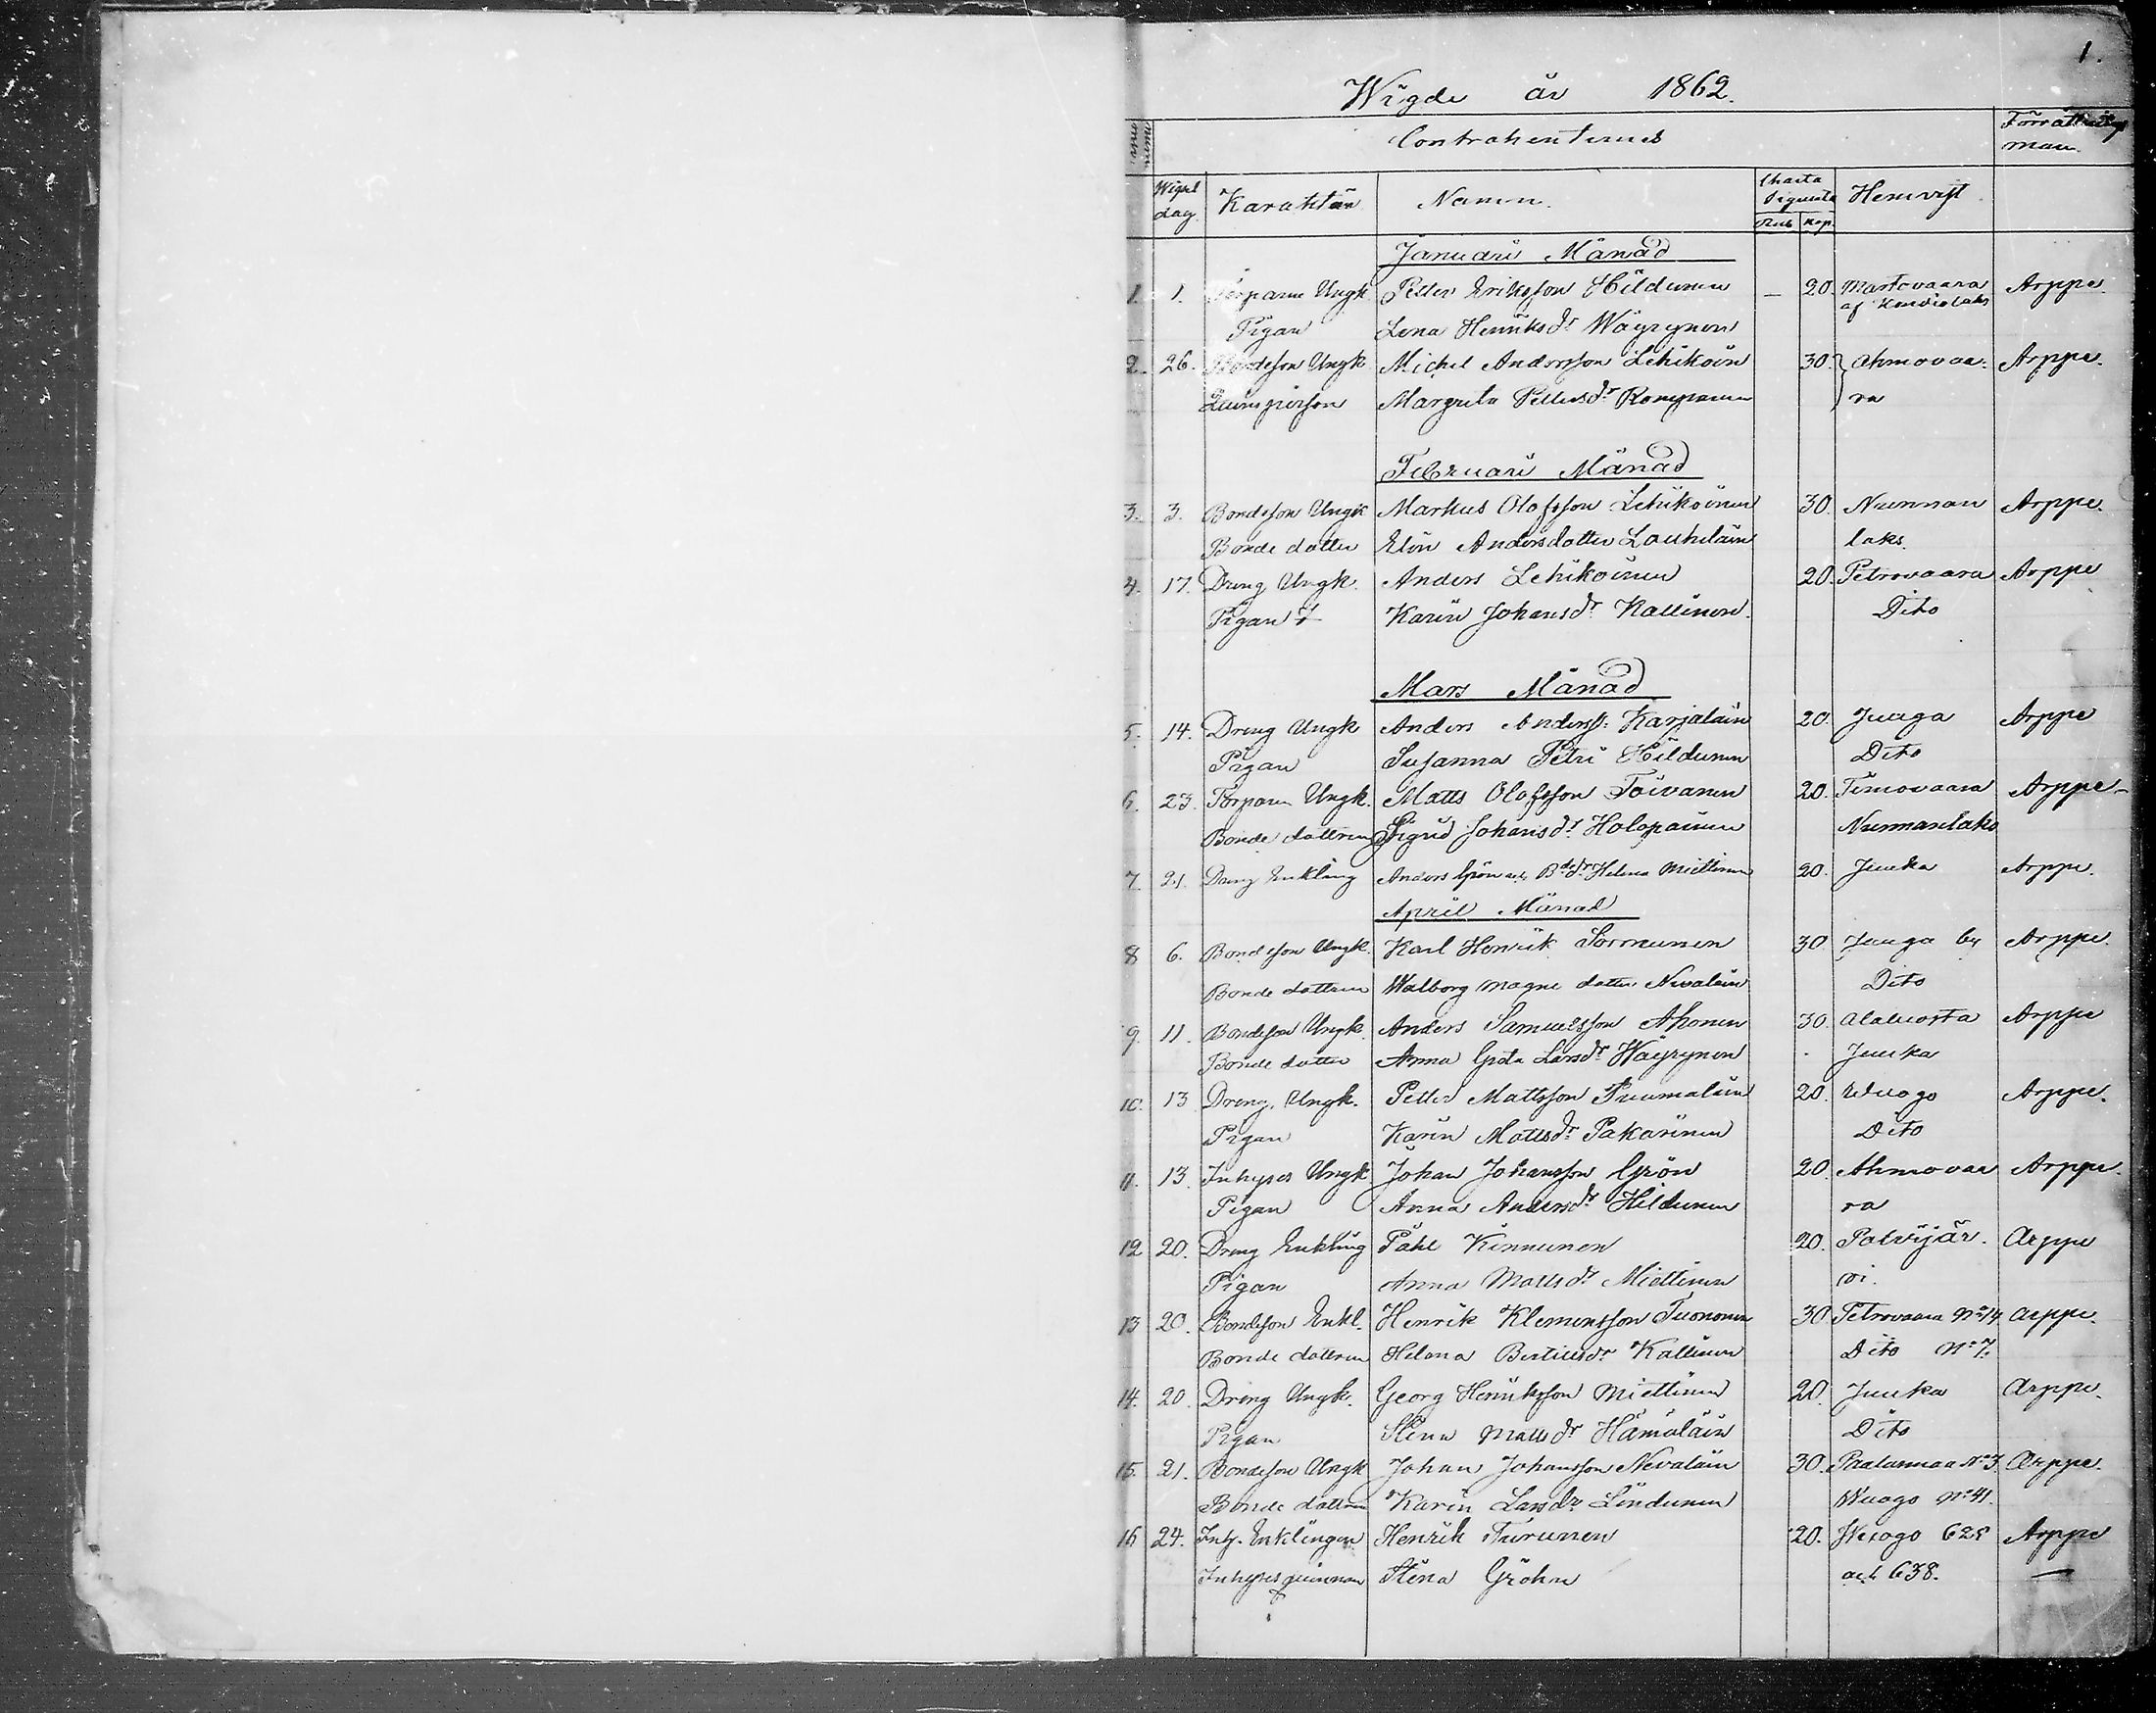 1.
Wigde år 1862.
Contrahenternes
Förrättnings
man.
Wigsel
dag.
Karaktär
Namn.
Charta
Sigillata
Rub Kop.
Hemvist
Januari Månad
1. 1. Torparen Ungk Petter Eriksson Hildunen — 20. Martovaara Arppe.
af Kondiolaks
Pigan Lena Henriksdr Wäyrynen
2. 26. Bondeson Ungk Michel Andersson Lehikoin 30. Ahmovaa- Arppe.
Qvinsperson Margreta Pettersdr Romppanen ra
Februari Månad
3. 3. Bondeson Ungk Markus Olofsson Lehikoinen 30. Nunnan Arppe.
Bonde dotter Elin Andersdotter Louhelain laks.
4. 17. Dreng Ungk. Anders Lehikoinen 20. Petrovaara Arppe
Pigan Karin Johansdr Kallinen. Dito
Mars Månad
5. 14. Dreng Ungk Anders Anderss: Karjalain 20. Juuga Arppe
Pigan Susanna Petri Hildunen Dito
6. 23. Torparen Ungk. Matts Olofsson Toivanen 20. Timovaara Arppe
Bonde dottren Sigrid Johansdr Holopainen Nunnanlaks
7. 21. Dreng Enkling Anders Grön och Bdedr Helena Miettinen 20. Juuka Arppe.
April Månad
8 6. Bondeson Ungk. Karl Henrik Sormunen 30 Juuga by Arppe.
Bonde dottren Walborg Magne dotter Nevalain Dito
9. 11. Bondeson Ungk. Anders Samuelsson Ahonen 30. Alaluosta Arppe
Bonde dotter Anna Greta Larsdr Wäyrynen Juuka
10. 13 Dreng. Ungk. Petter Mattsson Puumalain 20. Wuogo Arppe.
Pigan Karin Mattsdr Pakarinen Dito
11. 13. Inhyses Ungk. Johan Johansson Grön 20. Ahmovaa Arppe.
Pigan Anna Andersdr Hildunen ra
12 20. Dreng Enkling Påhl Kinnunen 20. Polvijär- Arppe
Pigan Anna Mattsdr Miettinen vi.
13 20. Bondeson Enkl. Henrik Klemensson Tuononen 30 Petrovaara No 14 Arppe.
Bonde dottren Helena Bertilsdr Kallinen Dito No 7.
14. 20. Dreng Ungk. Georg Henriksson Miettinen 20. Juuka Arppe.
Pigan Stina Mattsdr Hämäläin Dito
15. 21. Bondeson Ungk Johan Johansson Nevalain 30. Paalasmaa No 3. Arppe.
Bonde dottren Karin Larsdr Lindunen Wuogo No 41.
16 24. Inh. Enklingen Henrik Turunen 20. Wuogo 628 Arppe
Inhyses qvinnan Stina Gröhn och 638. —